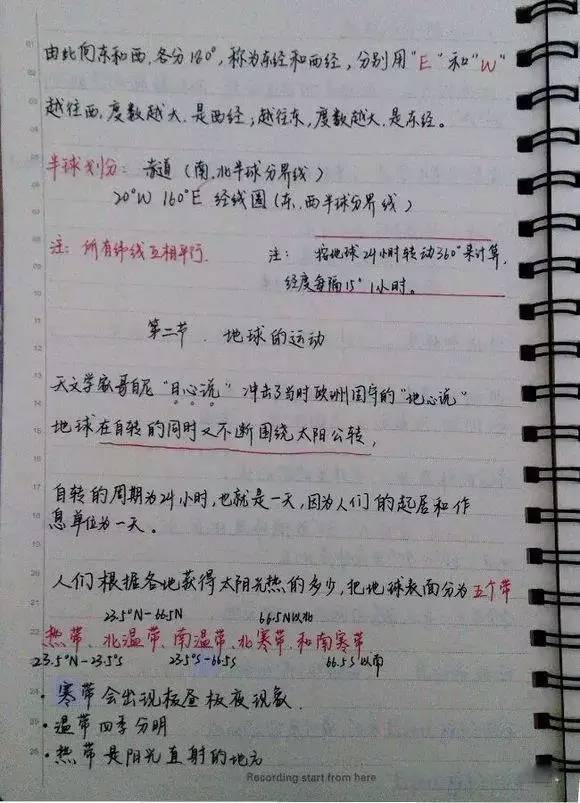 由此向东和西,各分180°,称为东经和西经,分别用"E"和"W"
越往西,度数越大,是西经;越往东,度数越大,是东经。
半球划分:赤道(南、北半球分界线)
20°W 160°E 经线圈(东、西半球分界线)
注:所有纬线互相平行.
注:按地球24小时转动360°来计算,
经度每隔15° 1小时。
第二节.地球的运动
天文学家哥白尼"日心说"冲击了当时欧洲固守的"地心说"
地球在自转的同时又不断围绕太阳公转,
自转的周期为24小时,也就是一天,因为人们的起居和作
息单位为一天。
人们根据各地获得太阳光热的多少,把地球表面分为五个带
23.5°N-66.5N 66.5N以北
热带、北温带、南温带、北寒带、和南寒带
23.5°N-23.5°S 23.5°S-66.5S 66.5S以南
·寒带会出现极昼极夜现象.
·温带四季分明
·热带是阳光直射的地方
Recording start from here